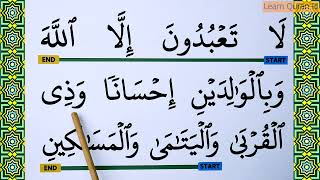 Learn Quran
لَا تَعْبُدُونَ إِلَّا ٱللَّهَ
END START
وَبِٱلْوَٰلِدَيْنِ إِحْسَانًا وَذِى
ٱلْقُرْبَىٰ وَٱلْيَتَـٰمَىٰ وَٱلْمَسَـٰكِينِ
END START